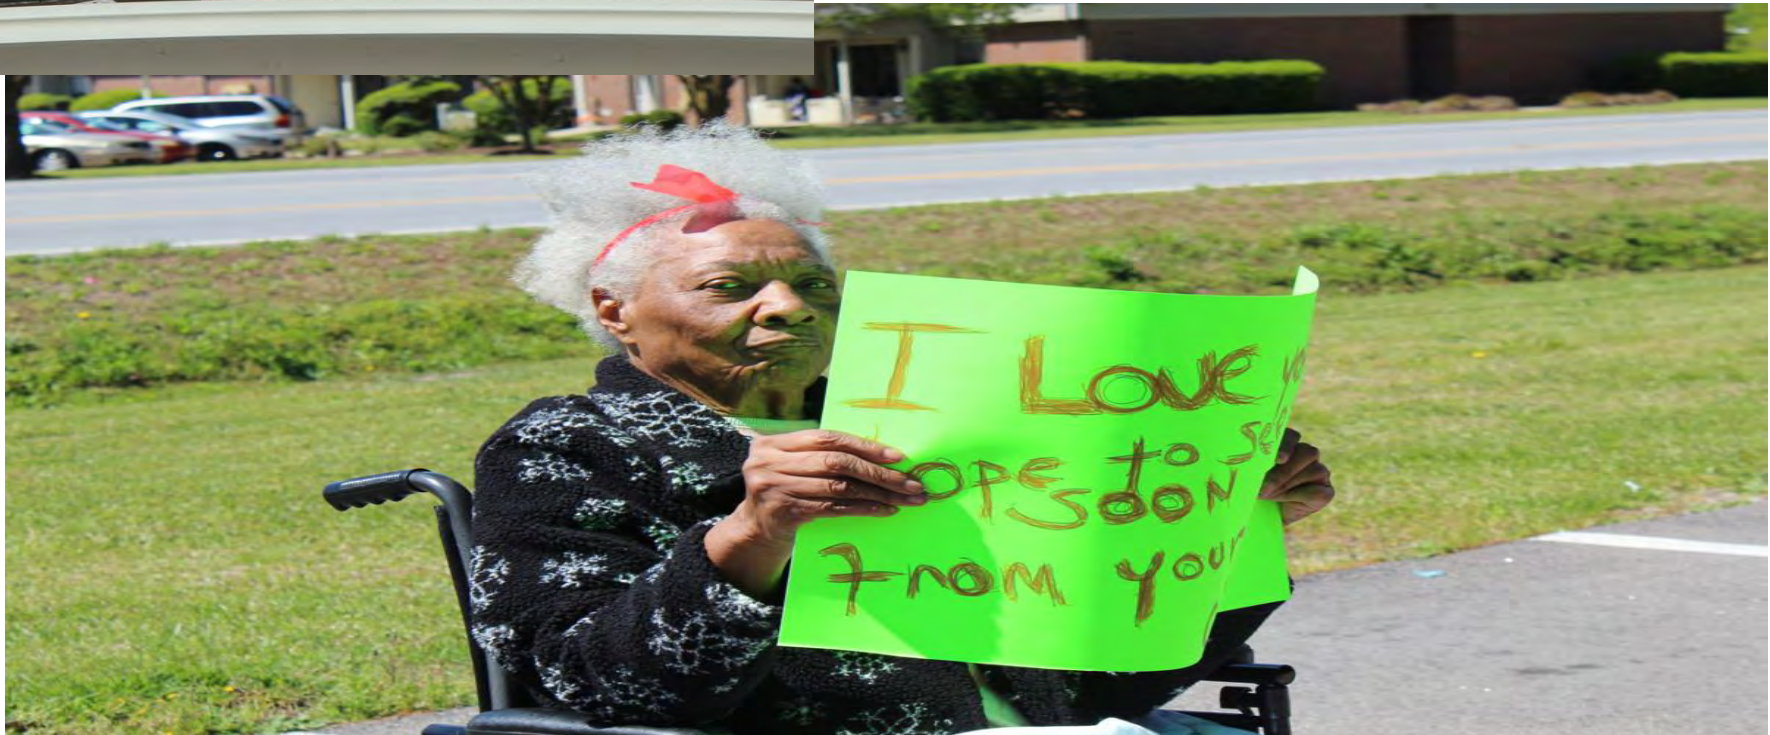 I LOVE yo
ope to see
SOON
From your